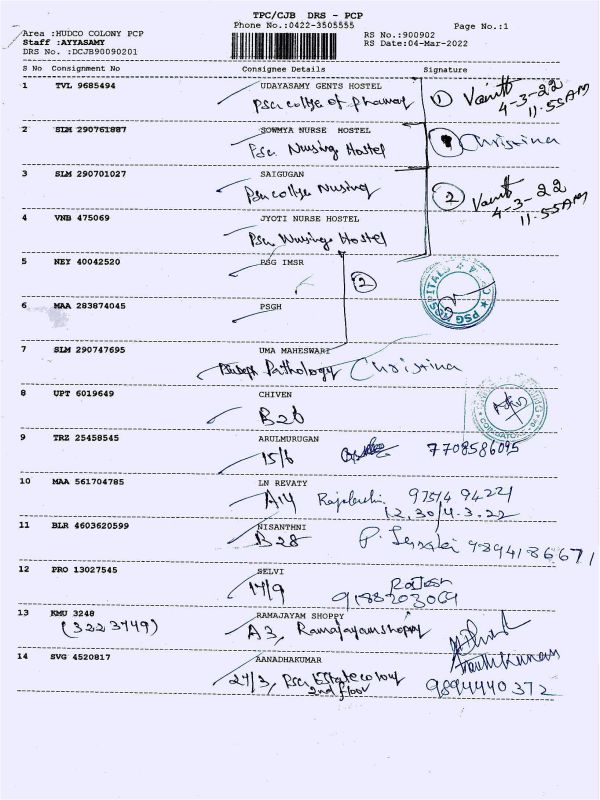 TPC/CJB DRS - PCP
Phone No.:0422-3505555
Page No.:1
Area :HUDCO COLONY PCP
RS No.:900902
Staff :AYYASAMY
RS Date:04-Mar-2022
DRS No. :DCJB90090201
S No Consignment No Consignee Details Signature
1 TVL 9685494 UDAYASAMY GENTS HOSTEL
Psg college of Pharmacy
① 4-3-22
11.55AM
2 SLM 290761887 SOWMYA NURSE HOSTEL
Psg Nursing Hostel Christina
3 SLM 290701027 SAIGUGAN
Psg college Nursing
② 4-3-22
11.55AM
4 VNB 475069 JYOTI NURSE HOSTEL
Psg Nursing Hostel
5 NEY 40042520 PSG IMSR
②
6 MAA 283874045 PSGH
7 SLM 290747695 UMA MAHESWARI
Pathology Christina
8 UPT 6019649 CHIVEN
B26
9 TRZ 25458545 ARULMURUGAN
15/6 7708586095
10 MAA 561704785 LN REVATY
A14
12.30/4.3.22
11 BLR 4603620599 NISANTHNI
B28 9894186671
12 PRO 13027545 SELVI
17/9 Rajesh
9188203069
13 KMU 3248 RAMAJAYAM SHOPPY
(3223749) A3, Ramajayam shoppy
14 SVG 4520817 AANADHAKUMAR
27/3, Psg Estate colony
2nd floor
9894440372